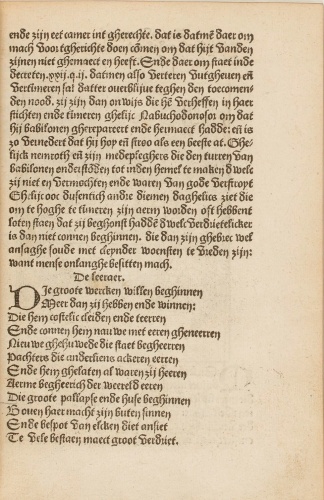 ende zijn eet camer int gherechte. dat is datmē daer om
mach voortgherichte doen comen om dat hijt vanden
zijnen niet ghemaect en heeft. Ende daer om staet inde
decreten .xxij.q.ij. datmen also verteren vutgheuen eñ
vertimeren sal datter ouerblijue teghen den toecomen-
den nood. zij zijn dan onwijs die hē verheffen in haer
stichten ende timeren ghelijc Nabuchodonosor om dat
hij babilonen gherepareert ende hemaect hadde: eñ is
zo vernedert dat hij hoy eñ stroo als een beeste at. Ghe-
lijck nemroth eñ zijn medepleghers die den turren van
babilonen onderstōden tot inden hemel te maken dwele
zij niet en vermochten ende waren van gode verstroyt
Ghelijc ooc dusentich andre diemen daghelics ziet die
om te hoghe te timeren zijn aerm worden oft hebbent
loten staen dat zij beghonst haddē dwelc verdrietelicker
is dan niet connen beghinnen. die dan zijn ghebrec wel
ansaghe soude met cleynder woensten te vreden zijn:
want mense onlanghe besitten mach.
De leeraer.
DJe groote wercken willen beghinnen
Meer dan zij hebben ende winnen:
Die hem costelic cleiden ende teerren
Ende connen hem nauwe met eeren gheneerren
Nieuwe ghehuwede die staet begheerren
Pachters die anderliens ackeren eerren
Ende hem ghelaten al waren zij heeren
Aerme begheerich der weereld eeren
Die groote pallayse ende huse beghinnen
Bouen haer macht zijn buten sinnen
Ende bespot van elcken diet ansiet
Te vele bestaen maect groot verdriet.